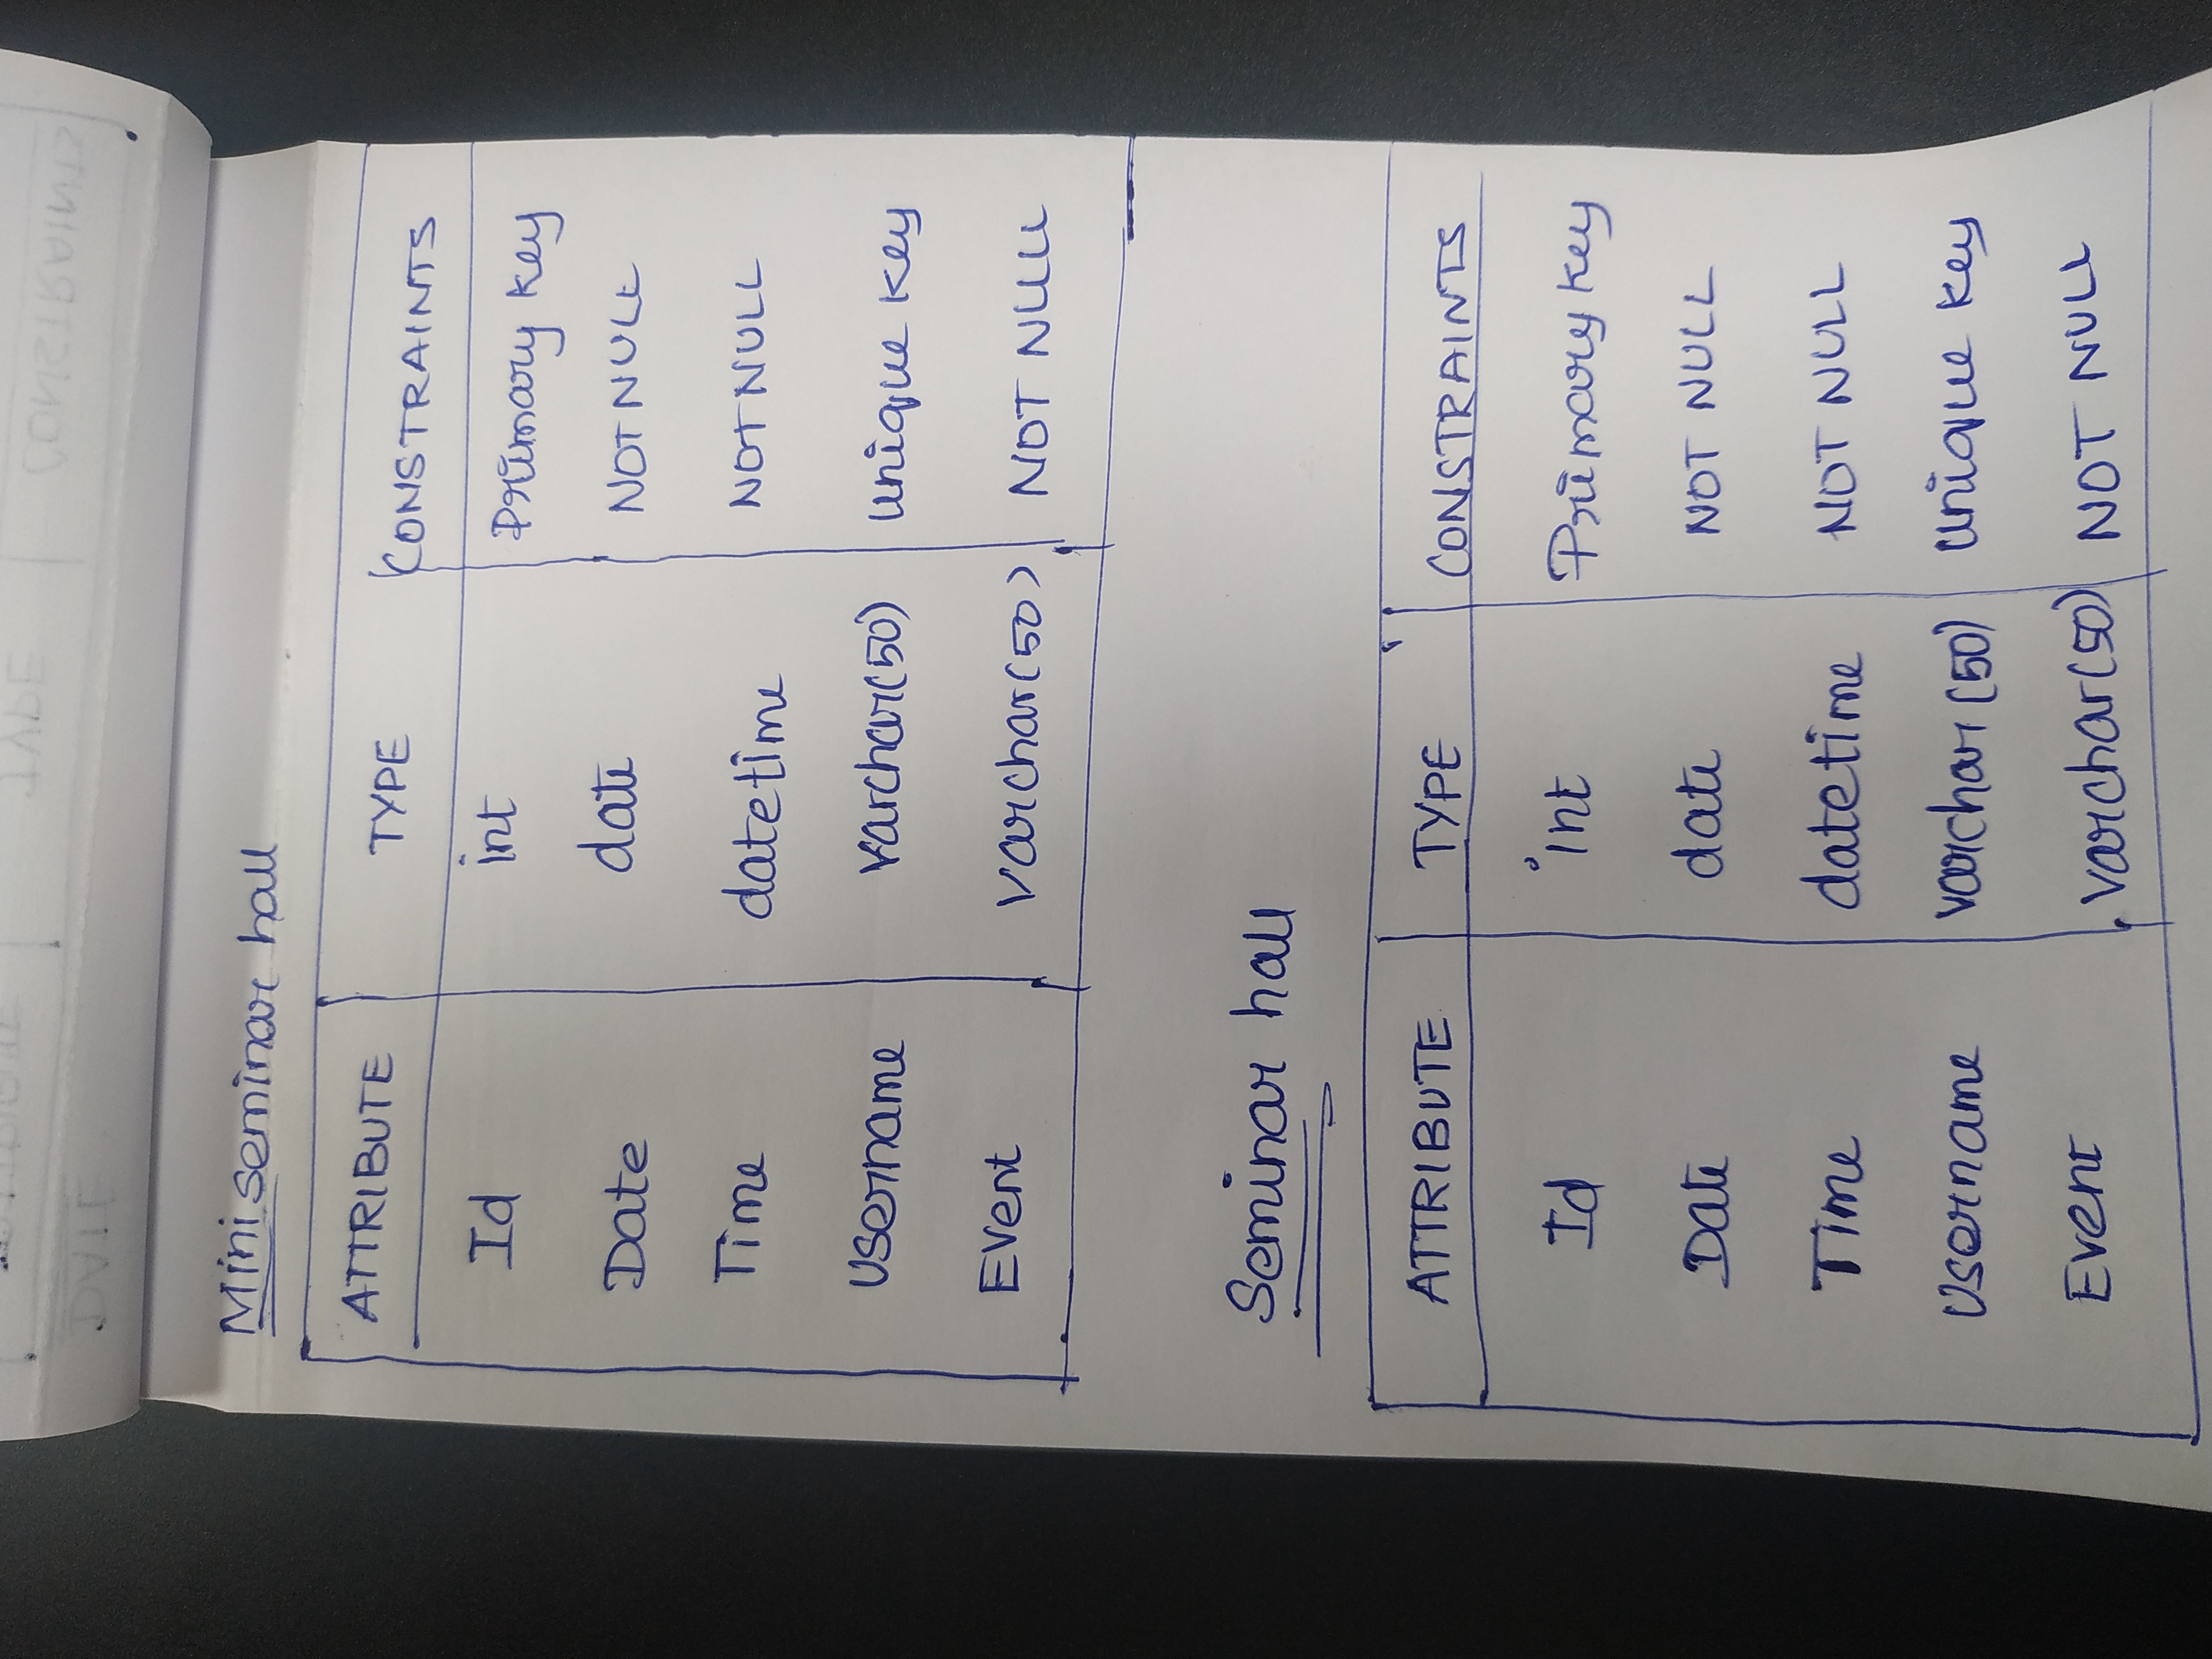 Mini seminar hall
ATTRIBUTE TYPE CONSTRAINTS
Id int Primary key
Date date NOT NULL
Time datetime NOT NULL
Username varchar(50) unique key
Event varchar(50) NOT NULL
Seminar hall
ATTRIBUTE TYPE CONSTRAINTS
Id int Primary key
Date date NOT NULL
Time datetime NOT NULL
Username varchar (50) unique key
Event varchar(50) NOT NULL